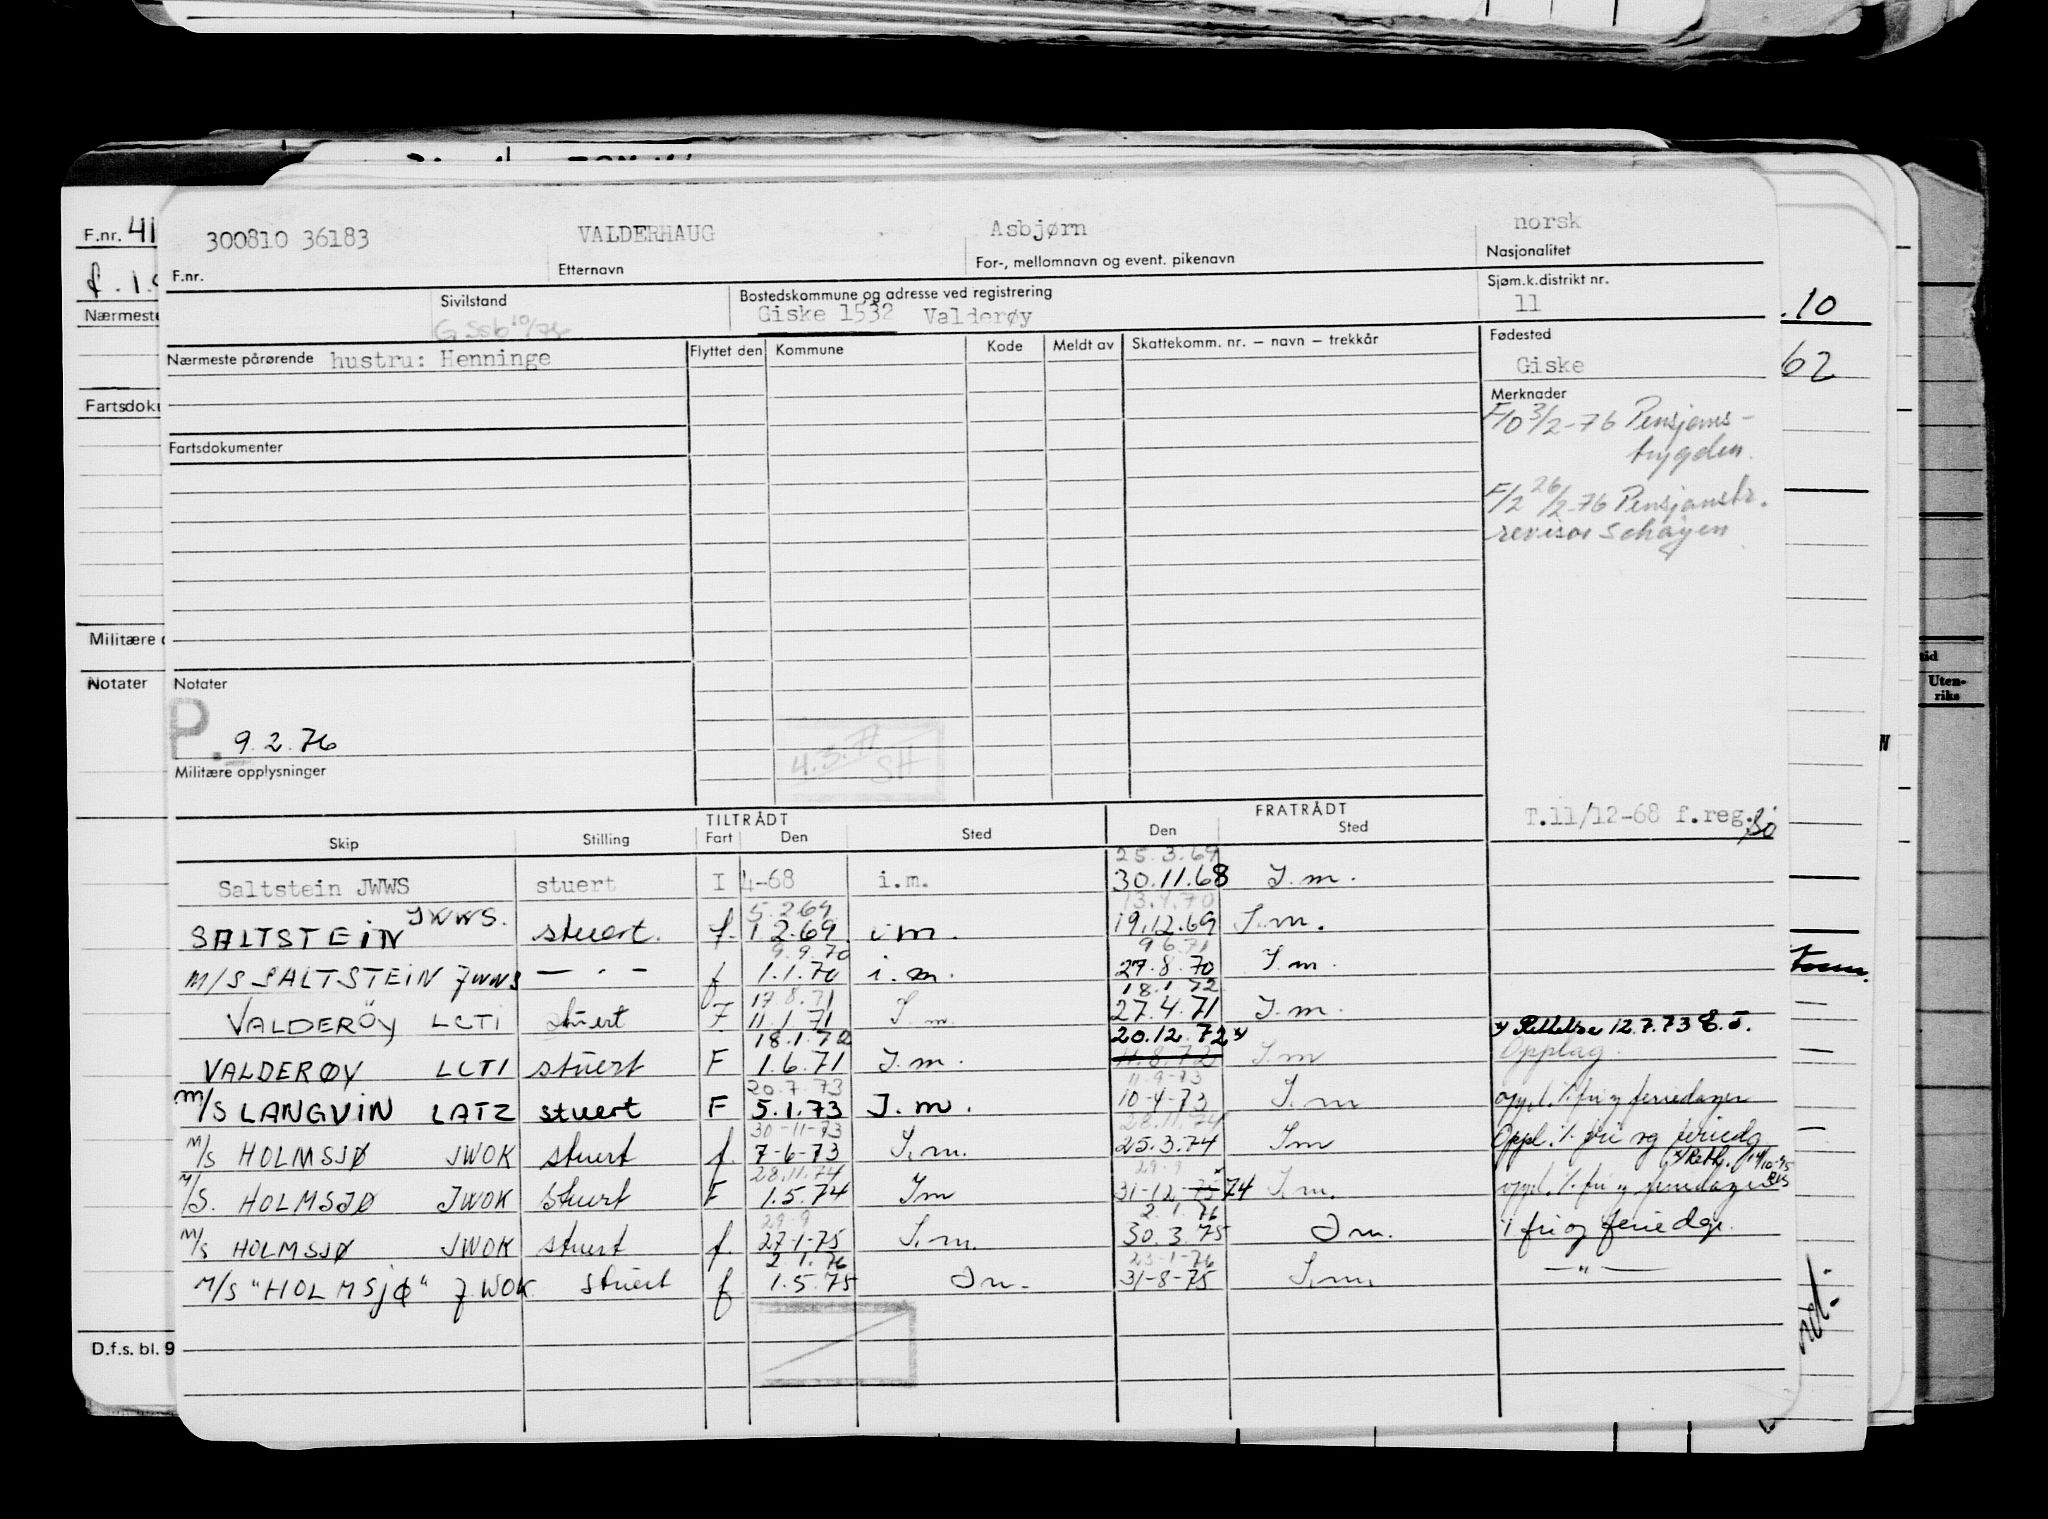 F.nr. 41
300810 36183 VALDERHAUG Asbjørn norsk
F.nr. Etternavn For-, mellomnavn og event. pikenavn Nasjonalitet
Sivilstand Bostedskommune og adresse ved registrering Sjøm.k.distrikt nr.
Giske 1532 Valderøy 11
.10
Nærmeste pårørende hustru: Henninge Flyttet den Kommune Kode Meldt av Skattekomm. nr. — navn — trekkår Fødested
Giske
62
Merknader
F/0 3/2-76 Pensjons-
trygden.
Fartsdokumenter
F/2 26/2-76 Pensjonstr.
revisor Schøyen
Militære
Notater
Notater
P. 9.2.76
4.3.71
SH
Militære opplysninger
tid
Uten-
riks
T.11/12-68 f.reg.
TILTRÅDT FRATRÅDT
Skip Stilling Fart Den Sted Den Sted
25.3.69
Saltstein JWWS stuert I 4-68 i.m. 30.11.68 I.m.
5.2.69 13.4.70
SALTSTEIN JWWS. stuert. f. 1 2.69. i m. 19.12.69 I.m.
9.9.70 9 6.71
M/S SALTSTEIN JWWS — . — f 1.1.70 i.m. 27.8.70 I.m.
17.8.71 18.1.72
VALDERÖY LCTI stuert F 11.1.71 I.m. 27.4.71 I.m.
18.1.72 20.12.72 x x/ Rettelse 12.7.73
VALDERØY LCTI stuert F 1.6.71 I.m. 11.8.72 I.m Opplag.
20.7.73 11-9-73
M/S LANGVIN LATZ stuert F 5.1.73 I.m. 10-4-73 I.m oppl. i. fri og feriedager
30-11-73 28.11.74
M/S HOLMSJØ JWOK stuert f. 7-6-73 I.m. 25.3.74 Im Oppl. i. fri og feriedg
28.11.74 29-9
M/S. HOLMSJØ JWOK stuert F 1.5.74 Im 31-12-75 74 I.m. oppl. i. fri og feriedager
29-9 2.1.76
M/S HOLMSJØ JWOK stuert f. 27-1-75 I.m. 30.3.75 I m. i fri og feriedge.
2.1.76 23-1-76
M/S "HOLMSJØ" JWOK stuert f 1.5.75 I m. 31-8-75 I.m. — " —
D.f.s. bl. 9